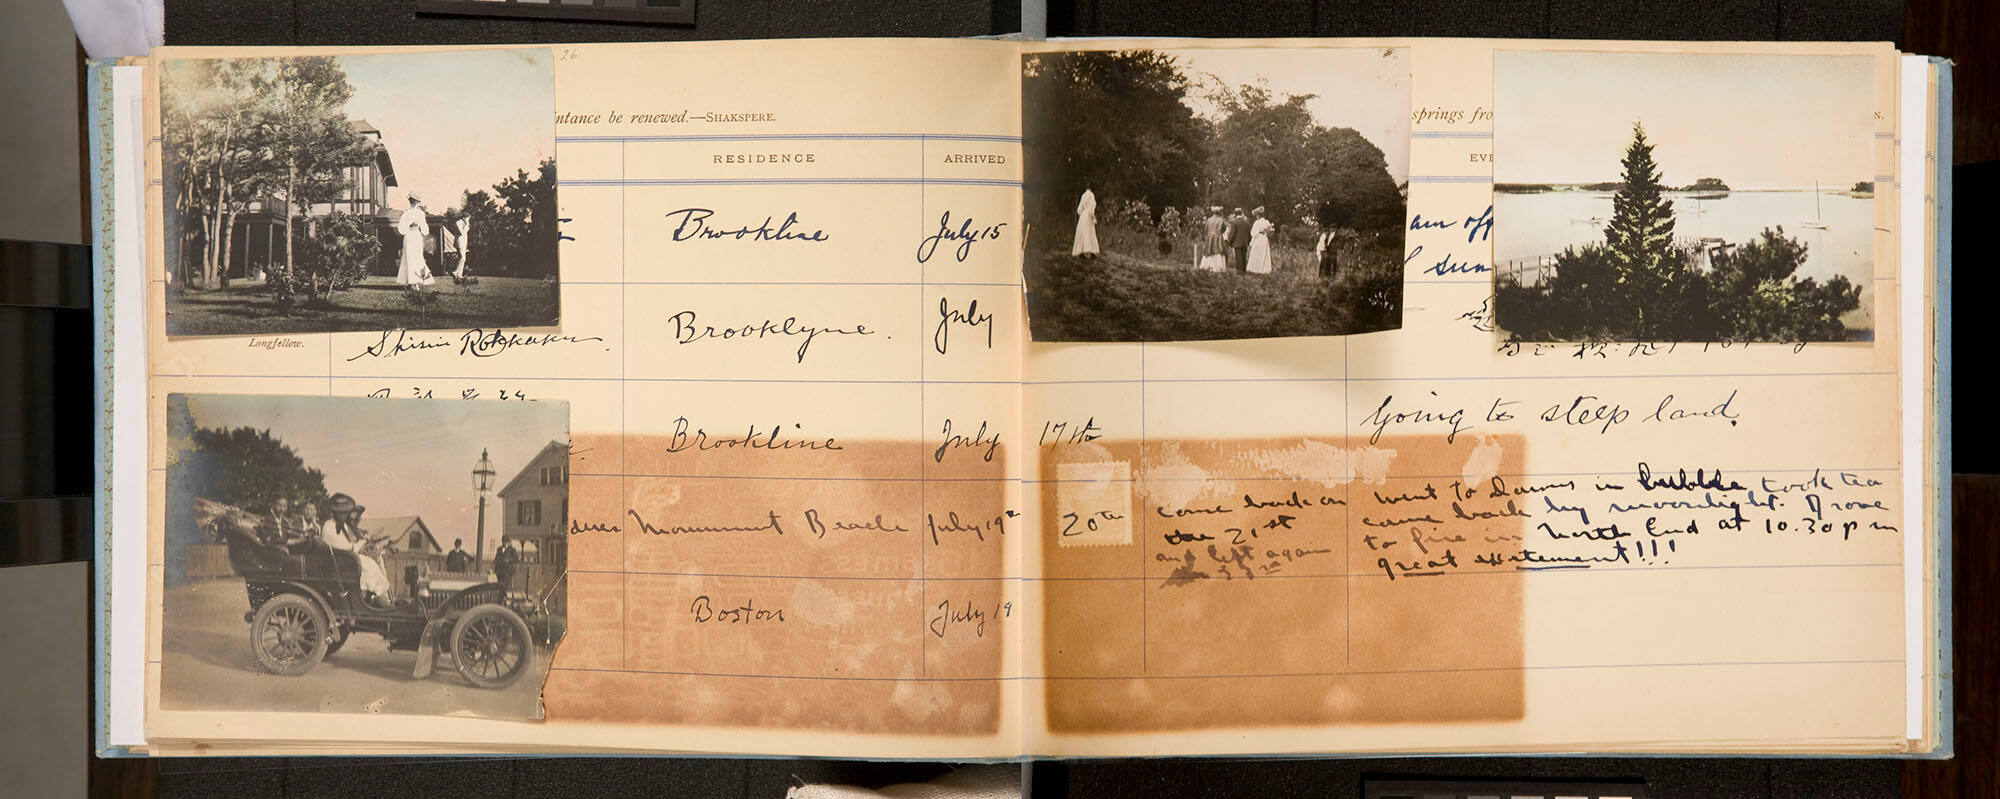 26
ntance be renewed.—SHAKSPERE.
RESIDENCE
ARRIVED
Brookline
July 15
Longfellow.
Shisui Rokkaku.
Brooklyne.
July
Brookline
July
Monument Beach
July 19th
Boston
July 19
springs fro
N.
EVE
am off
sun
17th
Going to steep land.
20th
came back on
the 21st
and left again
went to Dawns in bubble took tea
came back by moonlight. Drove
to fire in North End at 10.30 p m
great exitement!!!